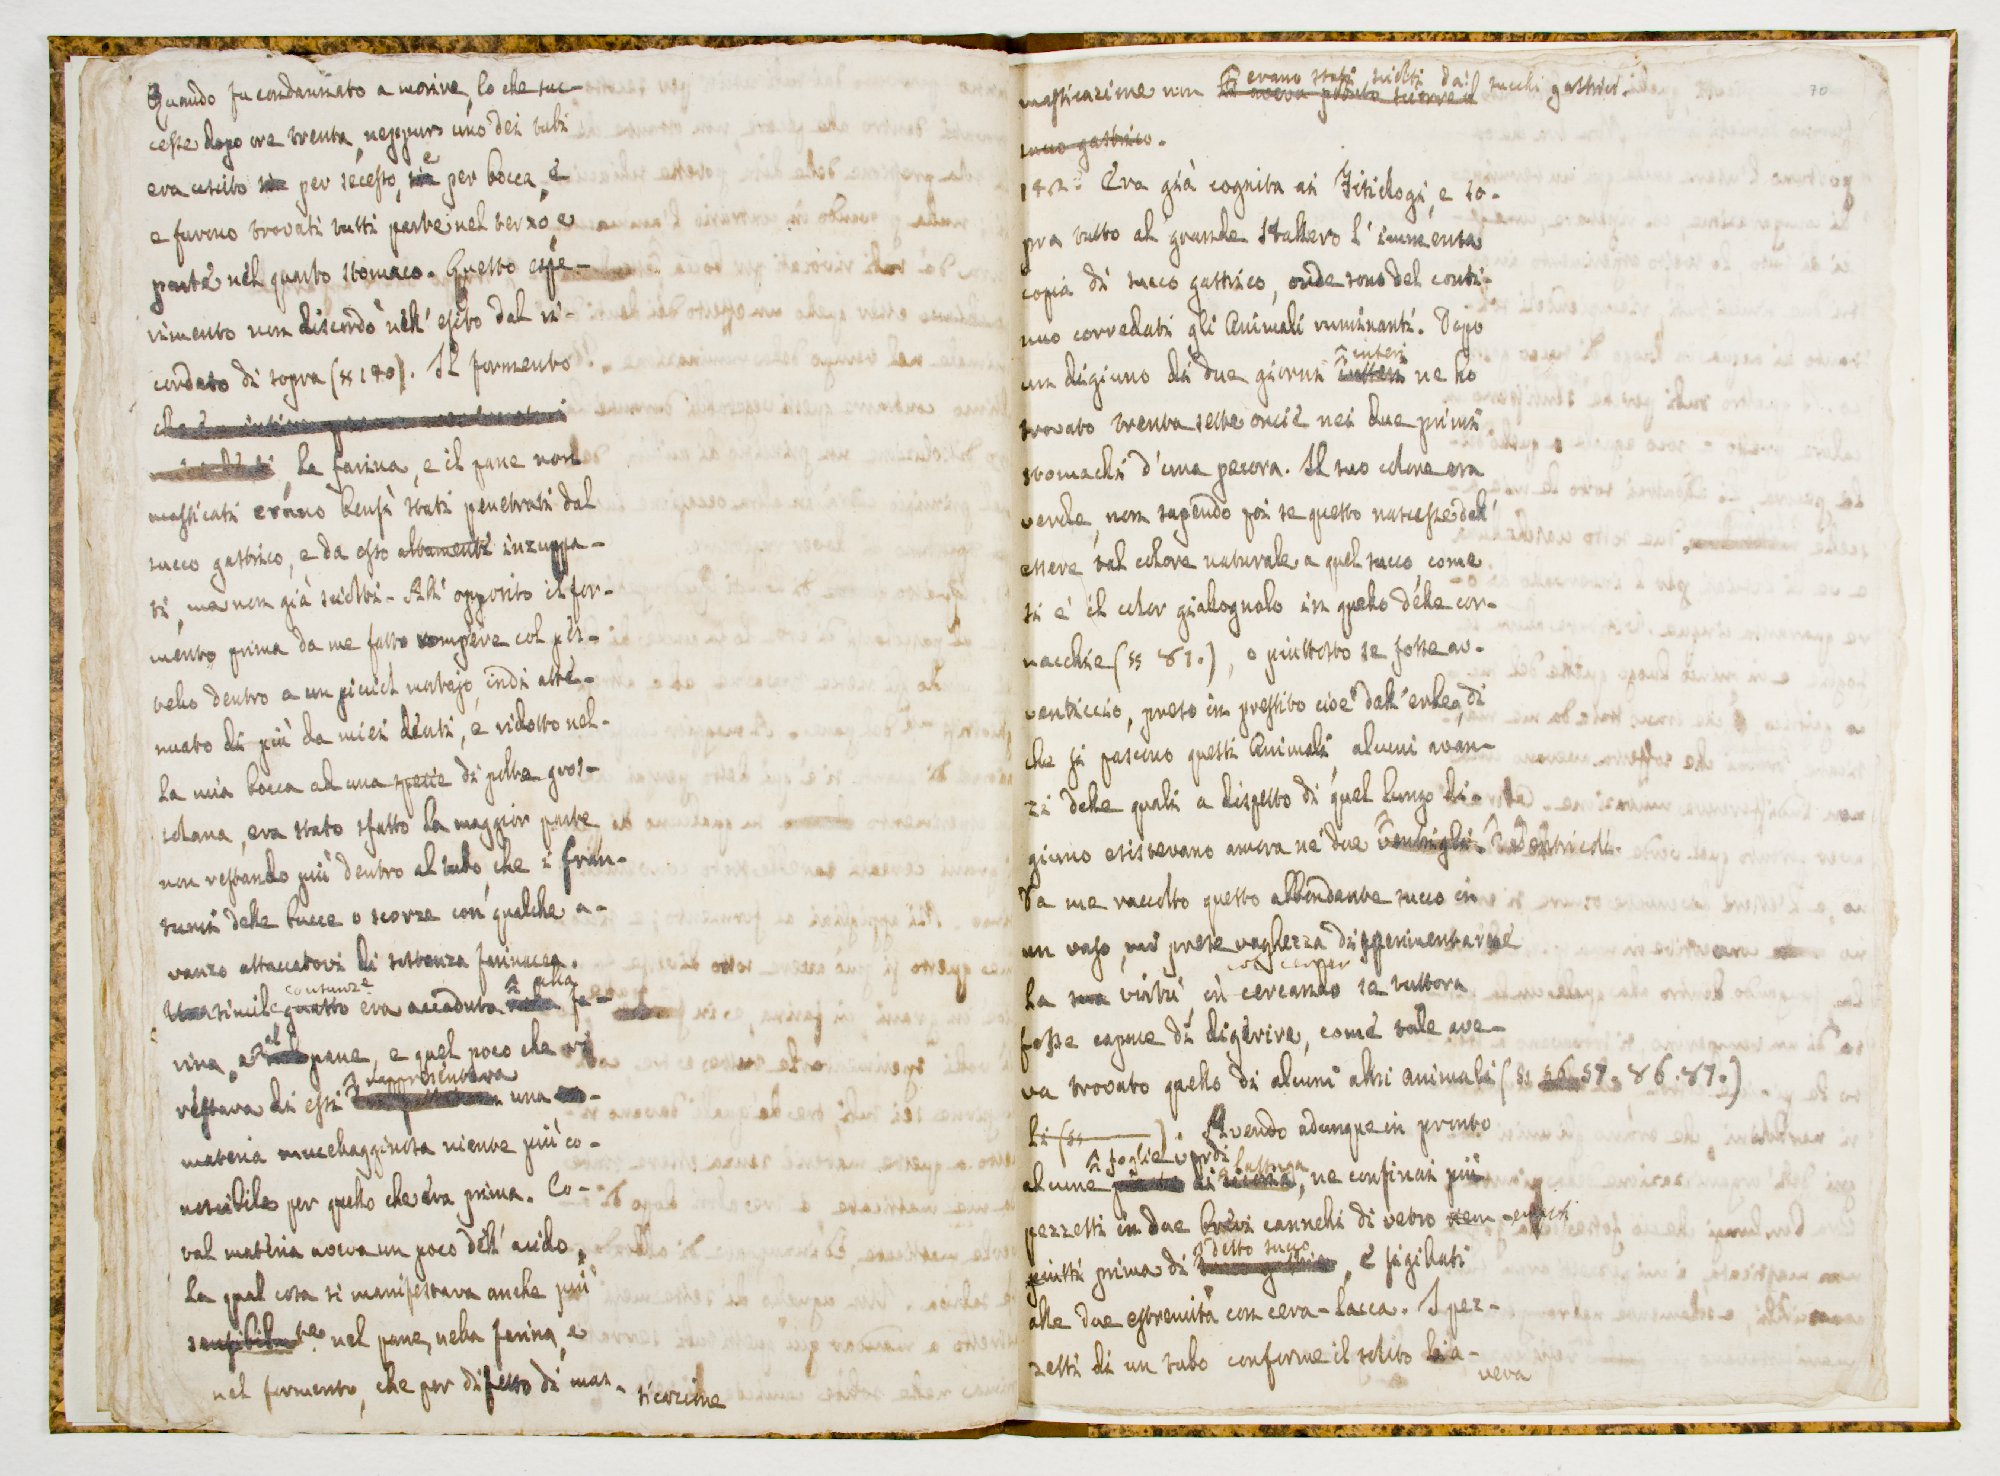 Quando fu condannato a morire, lo che suc-
cesse dopo ore trenta, neppure uno dei tubi
era uscito per secesso, e per bocca, e
e furono trovati tutti parte nel terzo, e
parte nel quarto stomaco. Questo espe-
rimento non discordò nell' esito dal ri-
cordato di sopra (§ 180). Il formento
la farina, e il pane non
masticati erano bensì stati penetrati dal
succo gastrico, e da esso altamente inzuppa-
ti, ma non già sciolti. All' opposito il for-
mento prima da me fatto rompere col pes-
tello dentro a un piccol mortajo, indi atte-
nuato di più da miei denti, e ridotto nel-
la mia bocca ad una specie di polte gros-
solana, era stato sfatto la maggior parte
non restando più dentro al tubo, che i fran-
tumi delle bucce o scorze con qualche a-
vanzo attaccatovi di sostanza farinacea.
costanza
Una simile quatto era accaduta alla fa-
rina, e al pane, e quel poco che vi
rappresentava
restava di essi una
materia muccellagginosa niente più co-
noscibile per quello che era prima. Co-
tal materia aveva un poco dell' acido,
la qual cosa si manifestava anche più
sensibilm.te nel pane, nella farina, e
nel formento, che per difetto di mas-
ticazione
70
erano stati sciolti dai succhi gastrici.
masticazione non si aveva potuto sciorre il
succo gastrico.
182. Era già cognita ai Fisiologi, e so-
pra tutto al grande Hallero l' immensa
copia di succo gastrico, onde sono del conti-
nuo corredati gli Animali ruminanti. Dopo
interi
un digiuno di due giorni ne ho
trovato trenta sette oncie nei due primi
stomachi d' una pecora. Il suo colore era
verde, non sapendo poi se questo nascesse dall'
essere tal colore naturale a quel succo, come
si è il color giallognolo in quello delle cor-
nacchie (§§ 81.), o piuttosto se fosse av-
venticcio, preso in prestito cioè dall' erbe, di
che si pascono questi Animali, alcuni avan-
zi delle quali a dispetto di quel lungo di-
giuno esistevano ancora ne' due Ventrigli. Ventricoli.
Da me raccolto questo abbondante succo in
un vaso, mi prese vaghezza di sperimentarne
la sua virtù, in cercando se tuttora
fosse capace di digerire, come tale ave-
va trovato quello di alcuni altri animali (§§ 56. 57. 86. 87.)
li (§§ ). Avendo adunque in pronto
foglie verdi lattuga
alcune di, ne confinai più
pezzetti in due brevi cannelli di vetro riem - empiuti
detto succo
piutti prima di succo gastrico, e sigillati
alle due estremità con cera-lacca. I pez-
zetti di un tubo conforme il solito li a-
veva